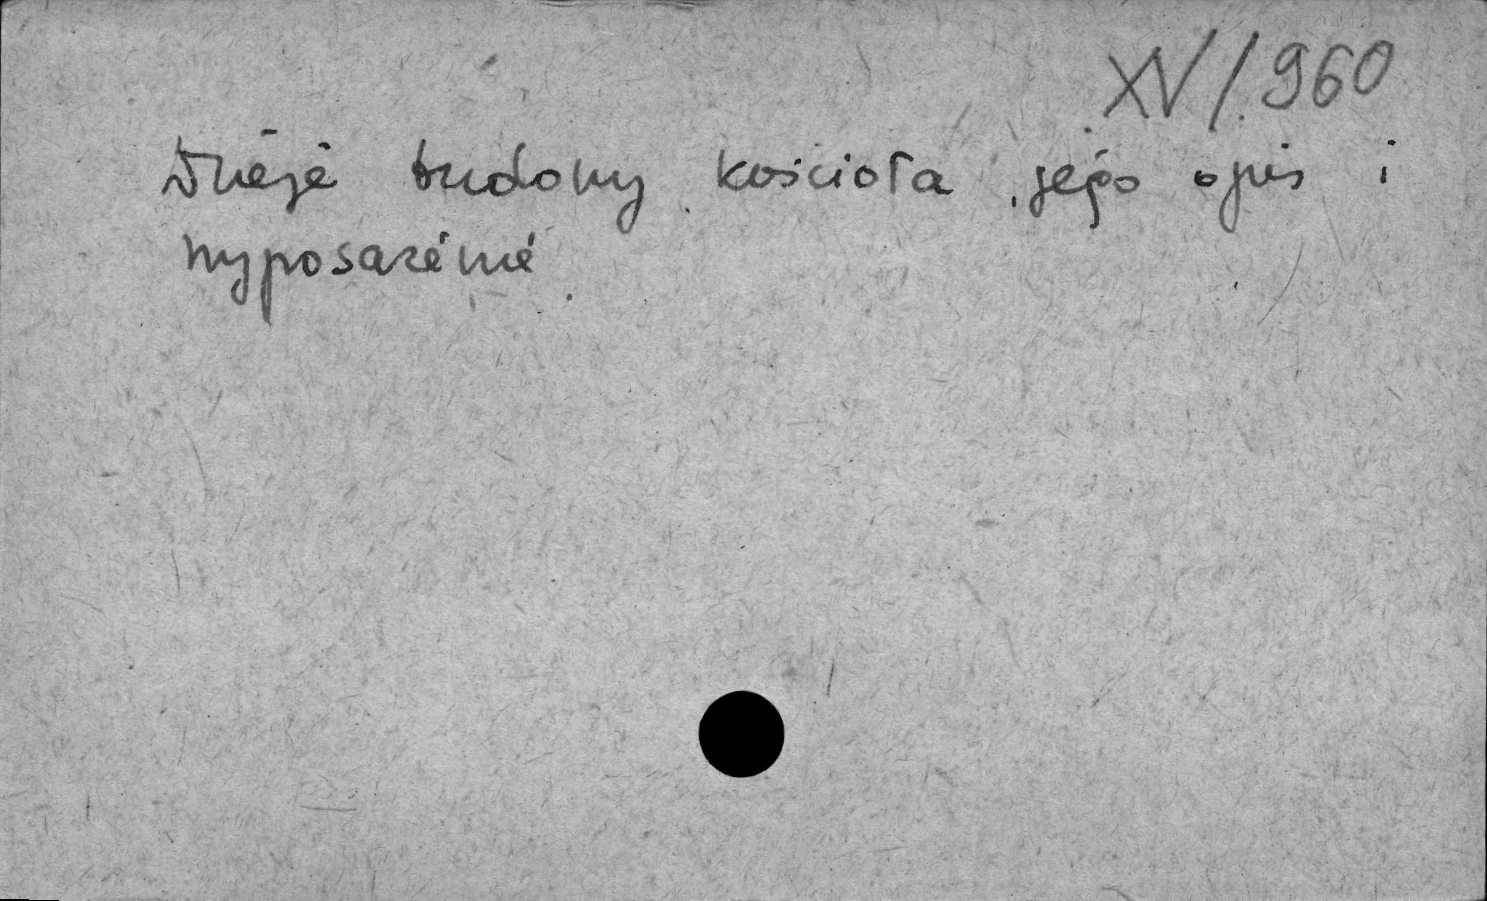 XV/960
Dzieje budowy kościoła, jego opis i
wyposażenie